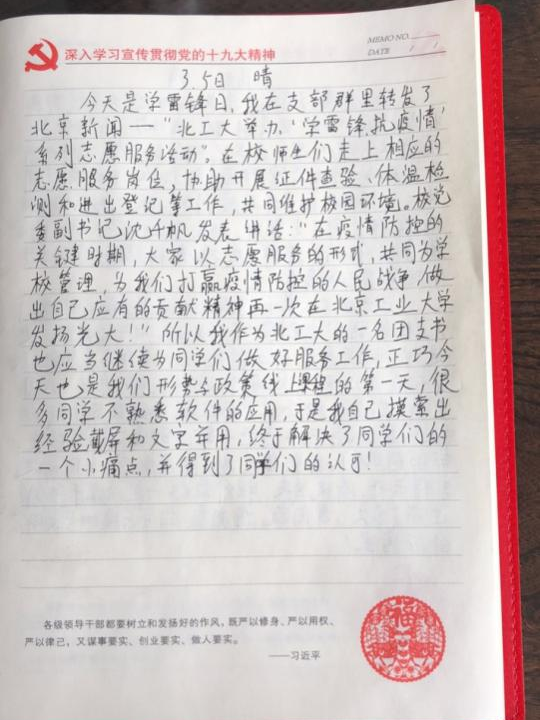 深入学习宣传贯彻党的十九大精神
MEMO NO.
DATE / /
3.5日 晴
今天是学雷锋日,我在支部群里转发了
北京新闻——“北工大举办‘学雷锋,抗疫情’
系列志愿服务活动”。在校师生们走上相应的
志愿服务岗位,协助开展证件查验、体温检
测和进出登记等工作,共同维护校园环境。校党
委副书记沈千帆发表讲话:“在疫情防控的
关键时期,大家以志愿服务的形式,共同为学
校管理,为我们打赢疫情防控的人民战争,做
出自己应有的贡献,精神再一次在北京工业大学
发扬光大!”所以我作为北工大的一名团支书
也应当继续为同学们做好服务工作,正巧今
天也是我们形势与政策线上课程的第一天,很
多同学不熟悉软件的应用,于是我自己摸索出
经验截屏和文字并用,终于解决了同学们的
一个小痛点,并得到了同学们的认可!
各级领导干部都要树立和发扬好的作风,既严以修身、严以用权、
严以律己,又谋事要实、创业要实、做人要实。
——习近平
福